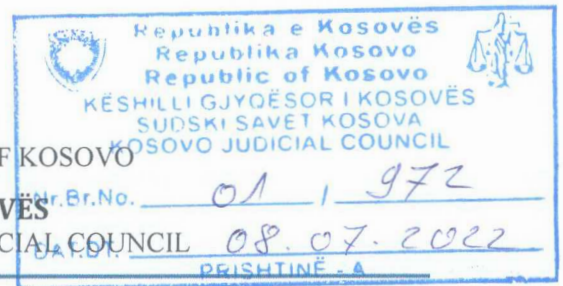 Republika e Kosovës
Republika Kosovo
Republic of Kosovo
KËSHILLI GJYQËSOR I KOSOVËS
SUDSKI SAVET KOSOVA
KOSOVO JUDICIAL COUNCIL
F KOSOVO
Nr.Br.No. 01 / 972
VËS
CIAL COUNCIL
DAT.DT. 08.07.2022
PRISHTINË - A